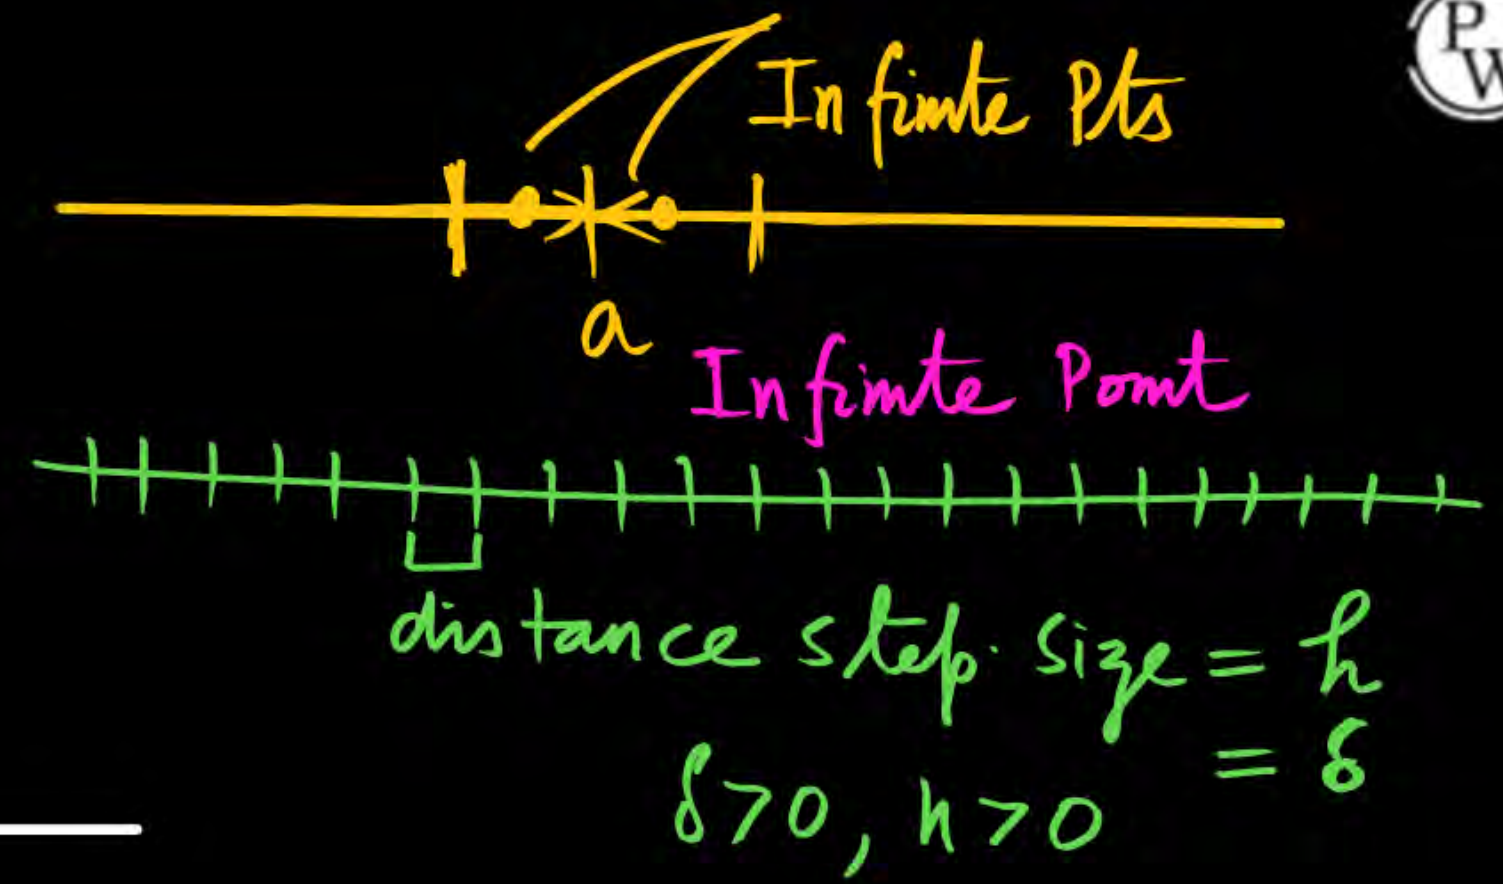 P
W
Infinite Pts
a
Infinite Point
distance step size = h
= δ
δ>0, h>0